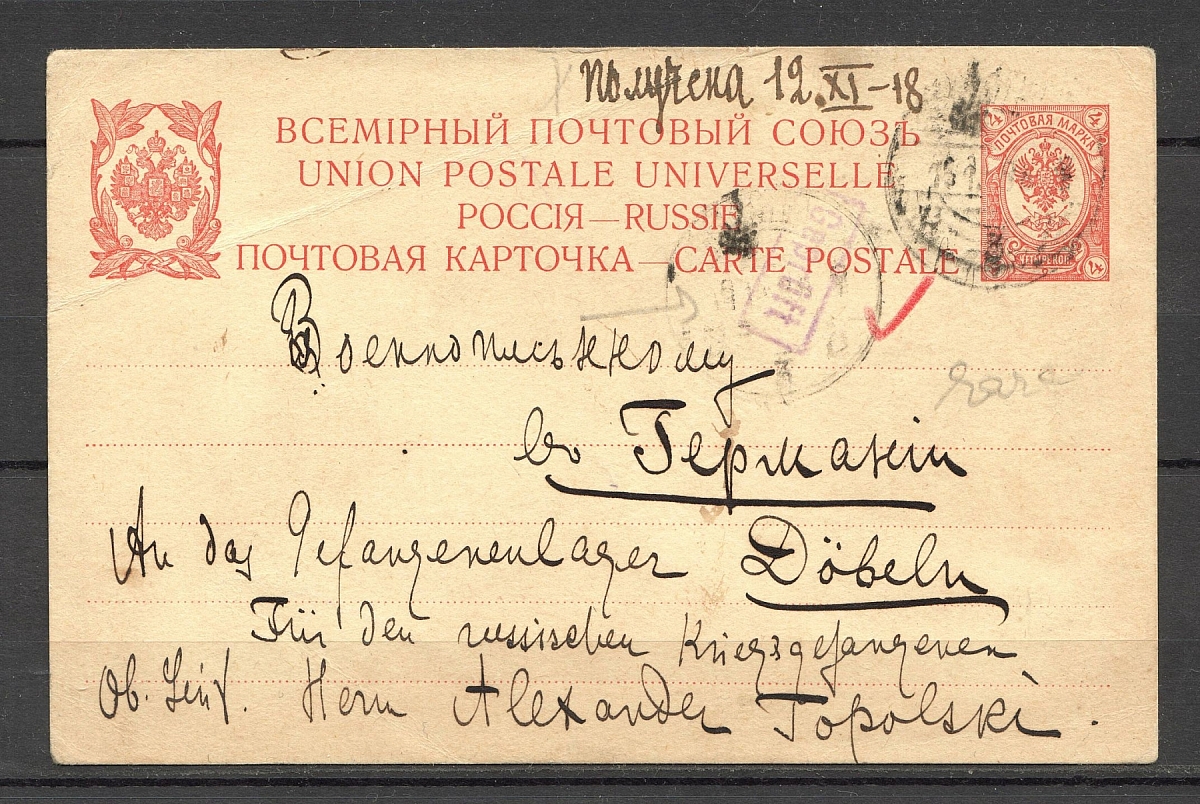 получена 12.XI-18
ВСЕМІРНЫЙ ПОЧТОВЫЙ СОЮЗЪ
UNION POSTALE UNIVERSELLE
РОССІЯ—RUSSIE
ПОЧТОВАЯ КАРТОЧКА—CARTE POSTALE
4 ПОЧТОВАЯ МАРКА 4
4 ЧЕТЫРЕ КОП. 4
Geprüft
Военноплѣнному
въ Германіи
An das Gefangenenlager Döbeln
Für den russischen Kriegsgefangenen
Ob. Leut. Herrn Alexander Topolski.